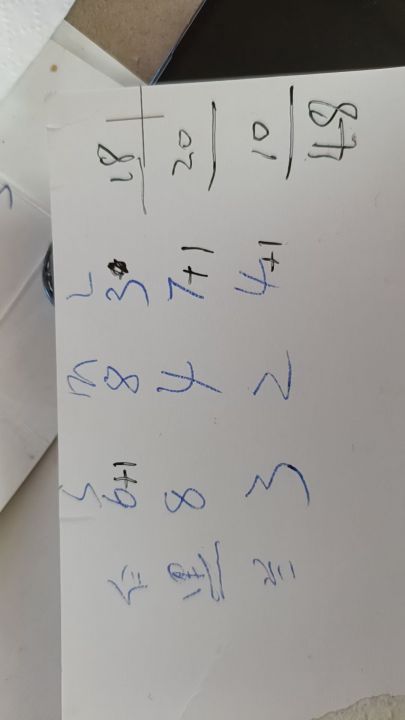 S M L
6+1 8 3 18
8 4 7+1 20
3 2 4+1 10
48